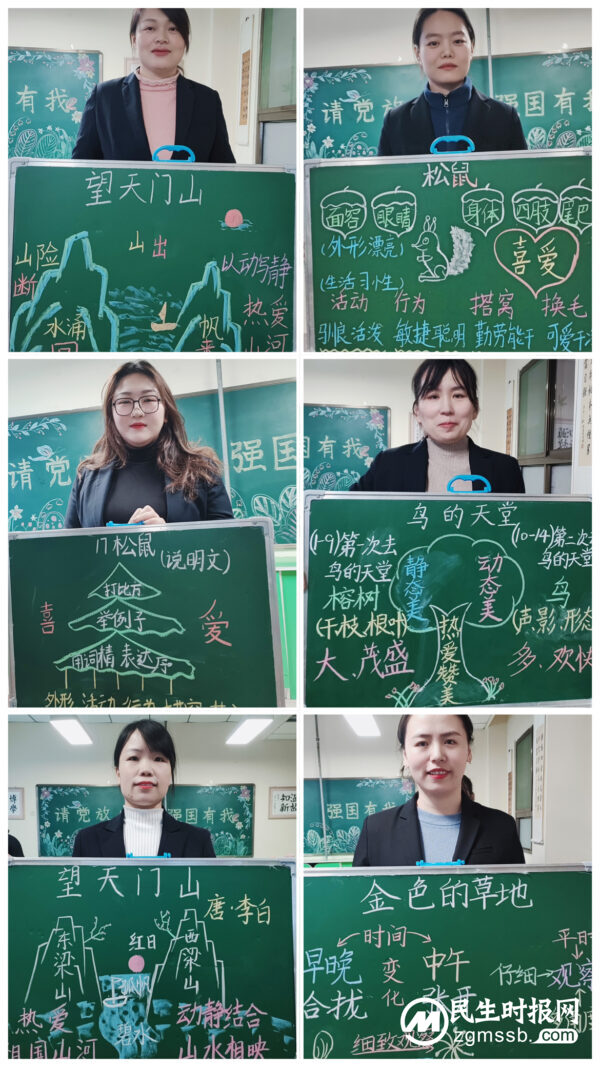 有我
望天门山
山险
山出
断
以动写静
水涌
帆
热爱
山河
请党放
强国有我
松鼠
面容
眼睛
身体
四肢
尾巴
(外形漂亮)
喜爱
(生活习性)
活动 行为 搭窝 换毛
驯良活泼 敏捷聪明 勤劳能干 可爱
请党
强国有我
17松鼠(说明文)
打比方
喜
举例子
爱
用词精 表达序
外形 活动 行为
鸟的天堂
(1-9)第一次去
鸟的天堂
榕树
(干枝、根叶)
大、茂盛
静态美
动态美
热爱赞美
(10-14)第二次去
鸟的天堂
鸟
(声、影、形态
多、欢快
请党放
强国有我
望天门山
唐·李白
东梁山
红日
西梁山
孤帆
碧水
热爱
祖国山河
动静结合
山水相映
强国有我
金色的草地
时间
早晚
变化
中午
合拢
张开
平时
仔细→观察
细致观察
民生时报网
zgmssb.com